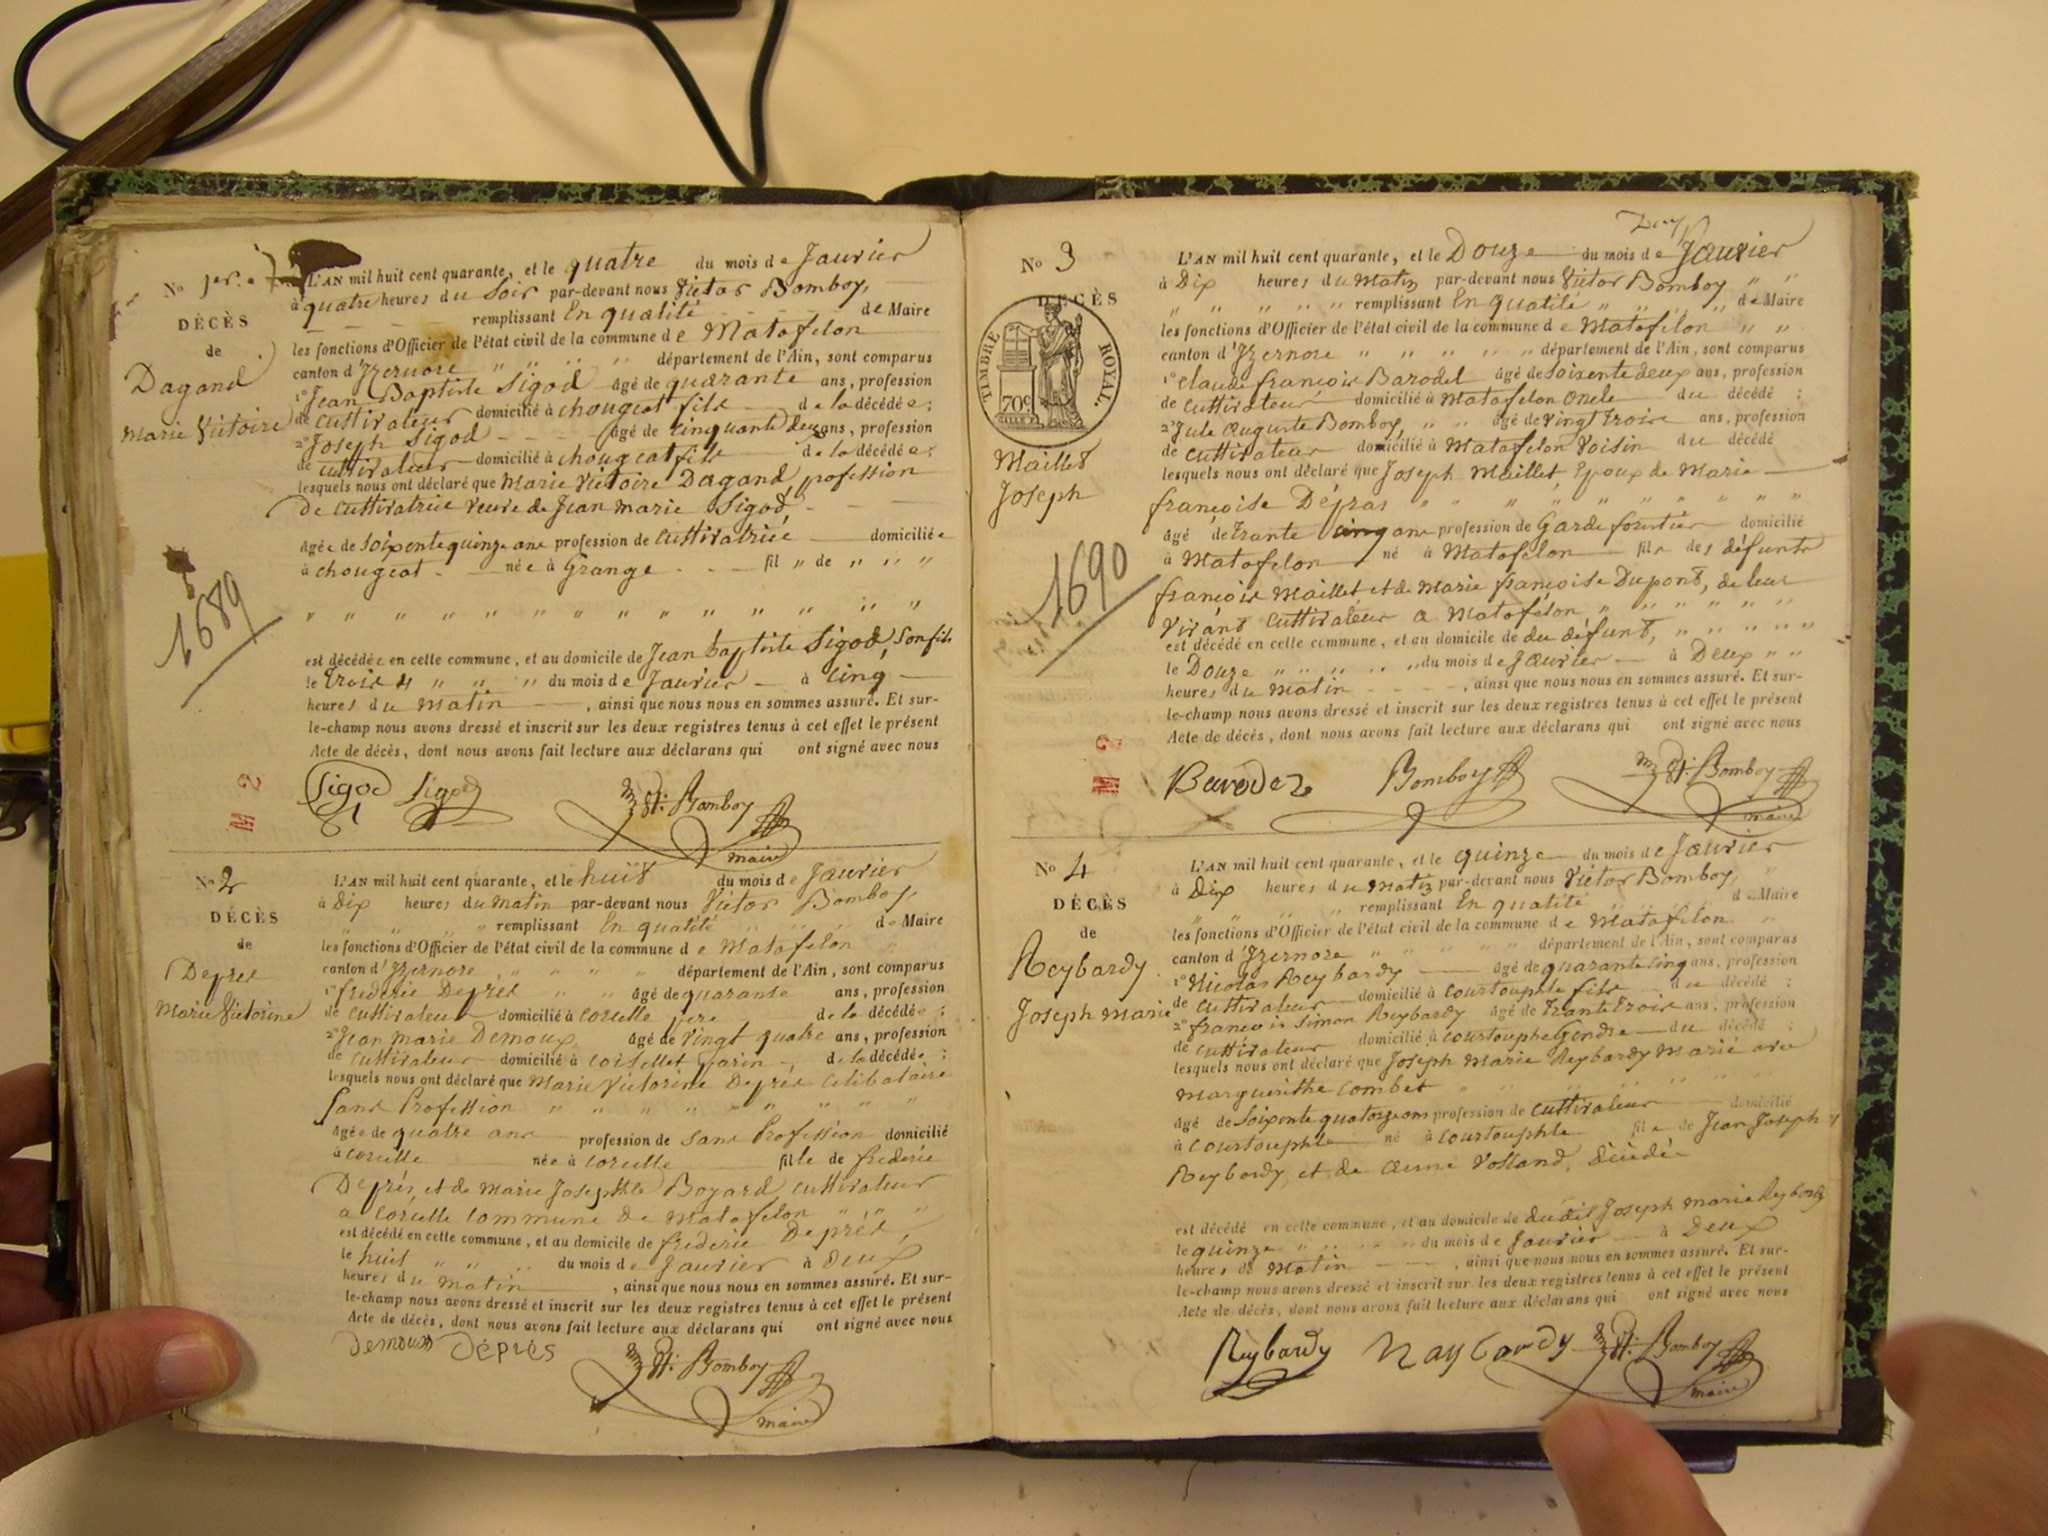 No 1er.
DÉCÈS
de
Dagand
Marie Victoire
1689
L'AN mil huit cent quarante, et le quatre du mois de Janvier
à quatre heures du Soir par-devant nous Victor Bomboy,
remplissant En qualité de Maire
les fonctions d'Officier de l'état civil de la commune de Matafelon
canton d'Izernore " " " " département de l'Ain, sont comparus
1º Jean Baptiste Sigod âgé de quarante ans, profession
de cultivateur domicilié à chougeat fils de la décédée;
2º Joseph Sigod âgé de cinquante deux ans, profession
de cultivateur domicilié à chougeat fils de la décédée;
lesquels nous ont déclaré que Marie Victoire Dagand, profession
De cultivatrice veuve de Jean Marie Sigod
âgée de soixente quinze ans profession de cultivatrice domiciliée
à chougeat née à Grange fil " de " " "
" " " " " " " " " " " " " "
est décédée en cette commune, et au domicile de Jean baptiste Sigod, son fils
le trois " " " du mois de Janvier à cinq
heures du Matin, ainsi que nous nous en sommes assuré. Et sur-
le-champ nous avons dressé et inscrit sur les deux registres tenus à cet effet le présent
Acte de décès, dont nous avons fait lecture aux déclarans qui ont signé avec nous
Sigod Sigod Bomboy
maire
M 2
No 2
DÉCÈS
de
Deprés
Marie Victorine
L'AN mil huit cent quarante, et le huit du mois de Janvier
à Dix heures du Matin par-devant nous Victor Bomboy,
" " " " remplissant En qualité " " " de Maire
les fonctions d'Officier de l'état civil de la commune de Matafelon "
canton d'Izernore " " " " département de l'Ain, sont comparus
1º frederic Deprés " " âgé de quarante ans, profession
de cultivateur domicilié à corcelle pere de la décédée;
2º Jean Marie Demoux âgé de Vingt quatre ans, profession
de cultivateur domicilié à de la décédée;
lesquels nous ont déclaré que Marie Victorine Deprés Célibataire
Sans Profession " " " " " " " " "
âgée de quatre ans profession de sans Profession domicilié
à corcelle née à corcelle fille de frederic
Deprés, et de Marie Josephte Boyard cultivateur
a corcelle commune de Matafelon " " "
est décédé en cette commune, et au domicile de frederic Deprés,
le huit " " " du mois de Janvier à Deux
heures du Matin, ainsi que nous nous en sommes assuré. Et sur-
le-champ nous avons dressé et inscrit sur les deux registres tenus à cet effet le présent
Acte de décès, dont nous avons fait lecture aux déclarans qui ont signé avec nous
Demoux Déprés Bomboy
maire
No 3
DÉCÈS
TIMBRE ROYAL.
70c
Maillet
Joseph
1690
L'AN mil huit cent quarante, et le Douze du mois de Janvier
à Dix heures du Matin par-devant nous Victor Bomboy " "
" " " " " remplissant En qualité " " " " de Maire
les fonctions d'Officier de l'état civil de la commune de Matafelon " "
canton d'Izernore " " " " " département de l'Ain, sont comparus
1º Claude françois Barodel âgé de soixente deux ans, profession
de cultivateur domicilié à Matafelon oncle du décédé;
2º Jule Auguste Bomboy, " " âgé de vingt trois ans, profession
de cultivateur domicilié à Matafelon Voisin du décédé
lesquels nous ont déclaré que Joseph Maillet, Epoux de Marie
françoise Dépras " " " " " " " " "
âgé de trante cinq ans profession de Garde forestier domicilié
à Matafelon né à Matafelon fils des défunts
françois Maillet et de Marie françoise Dupont, de leur
Vivant cultivateur a Matafélon " " " " "
est décédé en cette commune, et au domicile de du défunt, " " " " "
le Douze " " " " " du mois de Janvier à Deux " "
heures du Matin, ainsi que nous nous en sommes assuré. Et sur-
le-champ nous avons dressé et inscrit sur les deux registres tenus à cet effet le présent
Acte de décès, dont nous avons fait lecture aux déclarans qui ont signé avec nous
Bomboy Bomboy
maire
No 4
DÉCÈS
de
Reybardy
Joseph Marie
L'AN mil huit cent quarante, et le quinze du mois de Janvier
à Dix heures du Matin par-devant nous Victor Bomboy,
remplissant En qualité de Maire
les fonctions d'Officier de l'état civil de la commune de Matafelon "
canton d'Izernore " " " " " département de l'Ain, sont comparus
1º Nicolas Reybardy âgé de quarante cinq ans, profession
de cultivateur domicilié à courtouphle fils du décédé;
2º françois Simon Reybardy âgé de trante trois ans, profession
de cultivateur domicilié à courtouphle Gendre du décédé;
lesquels nous ont déclaré que Joseph Marie Reybardy Marié avec
Marguerithe Combet " " " " " " "
âgé de soixente quatorze ans profession de cultivateur domicilié
à courtouphle né à courtouphle fils de Jean Joseph
Reybardy, et de Anne Volland, décédé
est décédé en cette commune, et au domicile de dudit Joseph Marie Reybardy
le quinze " " " " du mois de Janvier à Deux
heures du Matin, ainsi que nous nous en sommes assuré. Et sur-
le-champ nous avons dressé et inscrit sur les deux registres tenus à cet effet le présent
Acte de décès, dont nous avons fait lecture aux déclarans qui ont signé avec nous
Reybardy Raybardy Bomboy
maire